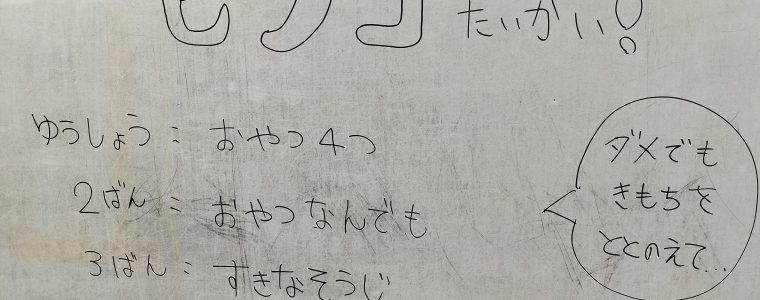 たいかい！
ゆうしょう： おやつ4つ
2ばん： おやつなんでも
3ばん： すきなそうじ
ダメでも
きもちを
ととのえて...